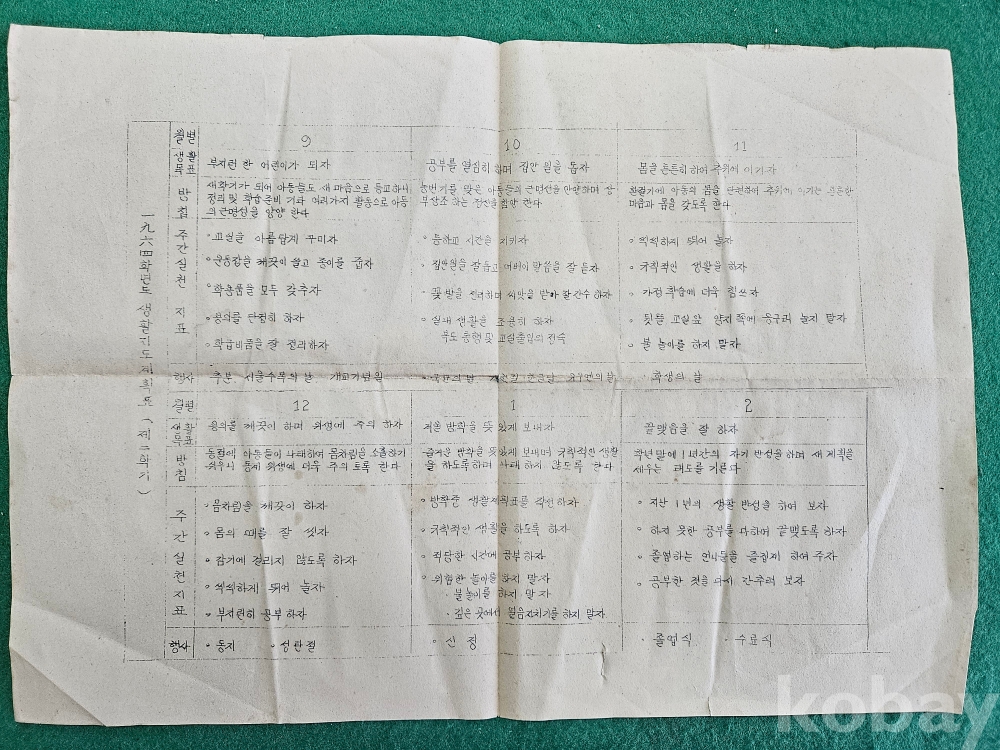 一九六四학년도 생활지도계획표 (제二학기)
월별 9 10 11
생활목표 부지런한 어린이가 되자 공부를 열심히 하며 집안 일을 돕자 몸을 튼튼히 하여 추위에 이기자
방침
새학기가 되어 아동들도 새 마음으로 등교하니
정리및 학습준비 기타 여러가지 활동으로 아동
의 근면성을 앙양 한다
농번기를 맞은 아동들의 근면성을 앙양하며 상
부상조 하는 정신을 함양 한다
환절기에 아동의 몸을 단련하여 추위에 이기는 튼튼한
마음과 몸을 갖도록 한다
주간실천지표
◦ 교실을 아름답게 꾸미자
◦ 운동장을 깨끗이 쓸고 종이를 줍자
◦ 학용품을 모두 갖추자
◦ 용의를 단정히 하자
◦ 학급비품을 잘 정리하자
◦ 등하교 시간을 지키자
◦ 집안일을 잘 돕고 어버이 말씀을 잘 듣자
◦ 꽃밭을 정리하며 씨앗을 받아 잘 간수 하자
◦ 실내 생활을 조용히 하자
복도 통행 및 교실출입의 정숙
◦ 씩씩하게 뛰어 놀자
◦ 규칙적인 생활을 하자
◦ 가정 학습에 더욱 힘쓰자
◦ 뒷뜰 교실앞 양지쪽에 웅구려 놀지 말자
◦ 불 놀이를 하지 말자
행사 추분 서울수복의 날 개교기념일 한글날 학생의 날
월별 12 1 2
생활목표 용의를 깨끗이 하며 위생에 주의 하자 겨울 방학을 뜻 있게 보내자 끝맺음을 잘 하자
방침
동절에 아동들이 나태하여 몸차림을 소홀하기
쉬우니 통제 위생에 더욱 주의 토록 한다
즐거운 방학을 뜻있게 보내며 규칙적인 생활
을 하도록하며 나태 하지 않도록 한다
학년말에 1년간의 자기 반성을 하며 새 계획을
세우는 태도를 기른다
주간실천지표
◦ 몸차림을 깨끗이 하자
◦ 몸의 때를 잘 씻자
◦ 감기에 걸리지 않도록 하자
◦ 씩씩하게 뛰어 놀자
◦ 부지런히 공부 하자
◦ 방학중 생활계획표를 작성하자
◦ 규칙적인 생활을 하도록 하자
◦ 적당한 시간에 공부 하자
◦ 위험한 놀이를 하지 말자
· 불놀이를 하지 말자
· 깊은 곳에서 얼음지치기를 하지 말자
◦ 지난 1년의 생활 반성을 하여 보자
◦ 하지 못한 공부를 다하여 끝맺도록 하자
◦ 졸업하는 언니들을 즐겁게 하여 주자
◦ 공부한 것을 다시 간추려 보자
행사 ◦ 동지 ◦ 성탄절 ◦ 신정 · 졸업식 ◦ 수료식
kobay